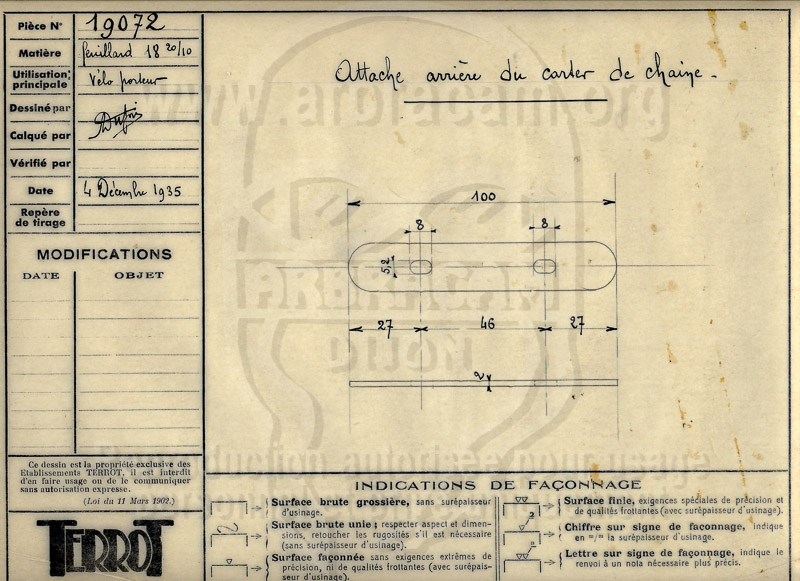 Pièce N° 19072
Matière feuillard 18 20/10
Utilisation principale Vélo porteur
Dessiné par
Calqué par
Vérifié par
Date 4 Décembre 1935
Repère de tirage
MODIFICATIONS
DATE OBJET
Ce dessin est la propriété exclusive des
Etablissements TERROT. il est interdit
d'en faire usage ou de le communiquer
sans autorisation expresse.
(Loi du 11 Mars 1902.)
TERROT
Attache arrière du carter de chaîne.
100
8 8
5,2
27 46 27
2
www.arbracam.org
ARBRACAM
DIJON
reproduction autorisée pour usage
INDICATIONS DE FAÇONNAGE
Surface brute grossière, sans surépaisseur
d'usinage.
Surface brute unie ; respecter aspect et dimen-
sions, retoucher les rugosités s'il est nécessaire
(sans surépaisseur d'usinage).
Surface façonnée sans exigences extrêmes de
précision, ni de qualités frottantes (avec surépais-
seur d'usinage).
Surface finie, exigences spéciales de précision et
de qualités frottantes (avec surépaisseur d'usinage).
Chiffre sur signe de façonnage, indique
en =/= la surépaisseur d'usinage.
Lettre sur signe de façonnage, indique le
renvoi à un nota nécessaire plus précis.